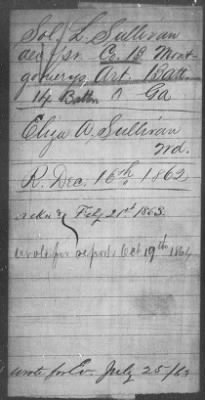 Sol L. Sullivan
dec'd Pr. Co. B Mont-
gomery's Art. Batt.
14 Battn Ga
Eliza A. Sullivan
Wd.
R. Dec. 16th 1862
Feby 21st 1863.
wrote for report Oct 19th 1864
wrote for Ev. July 25/63